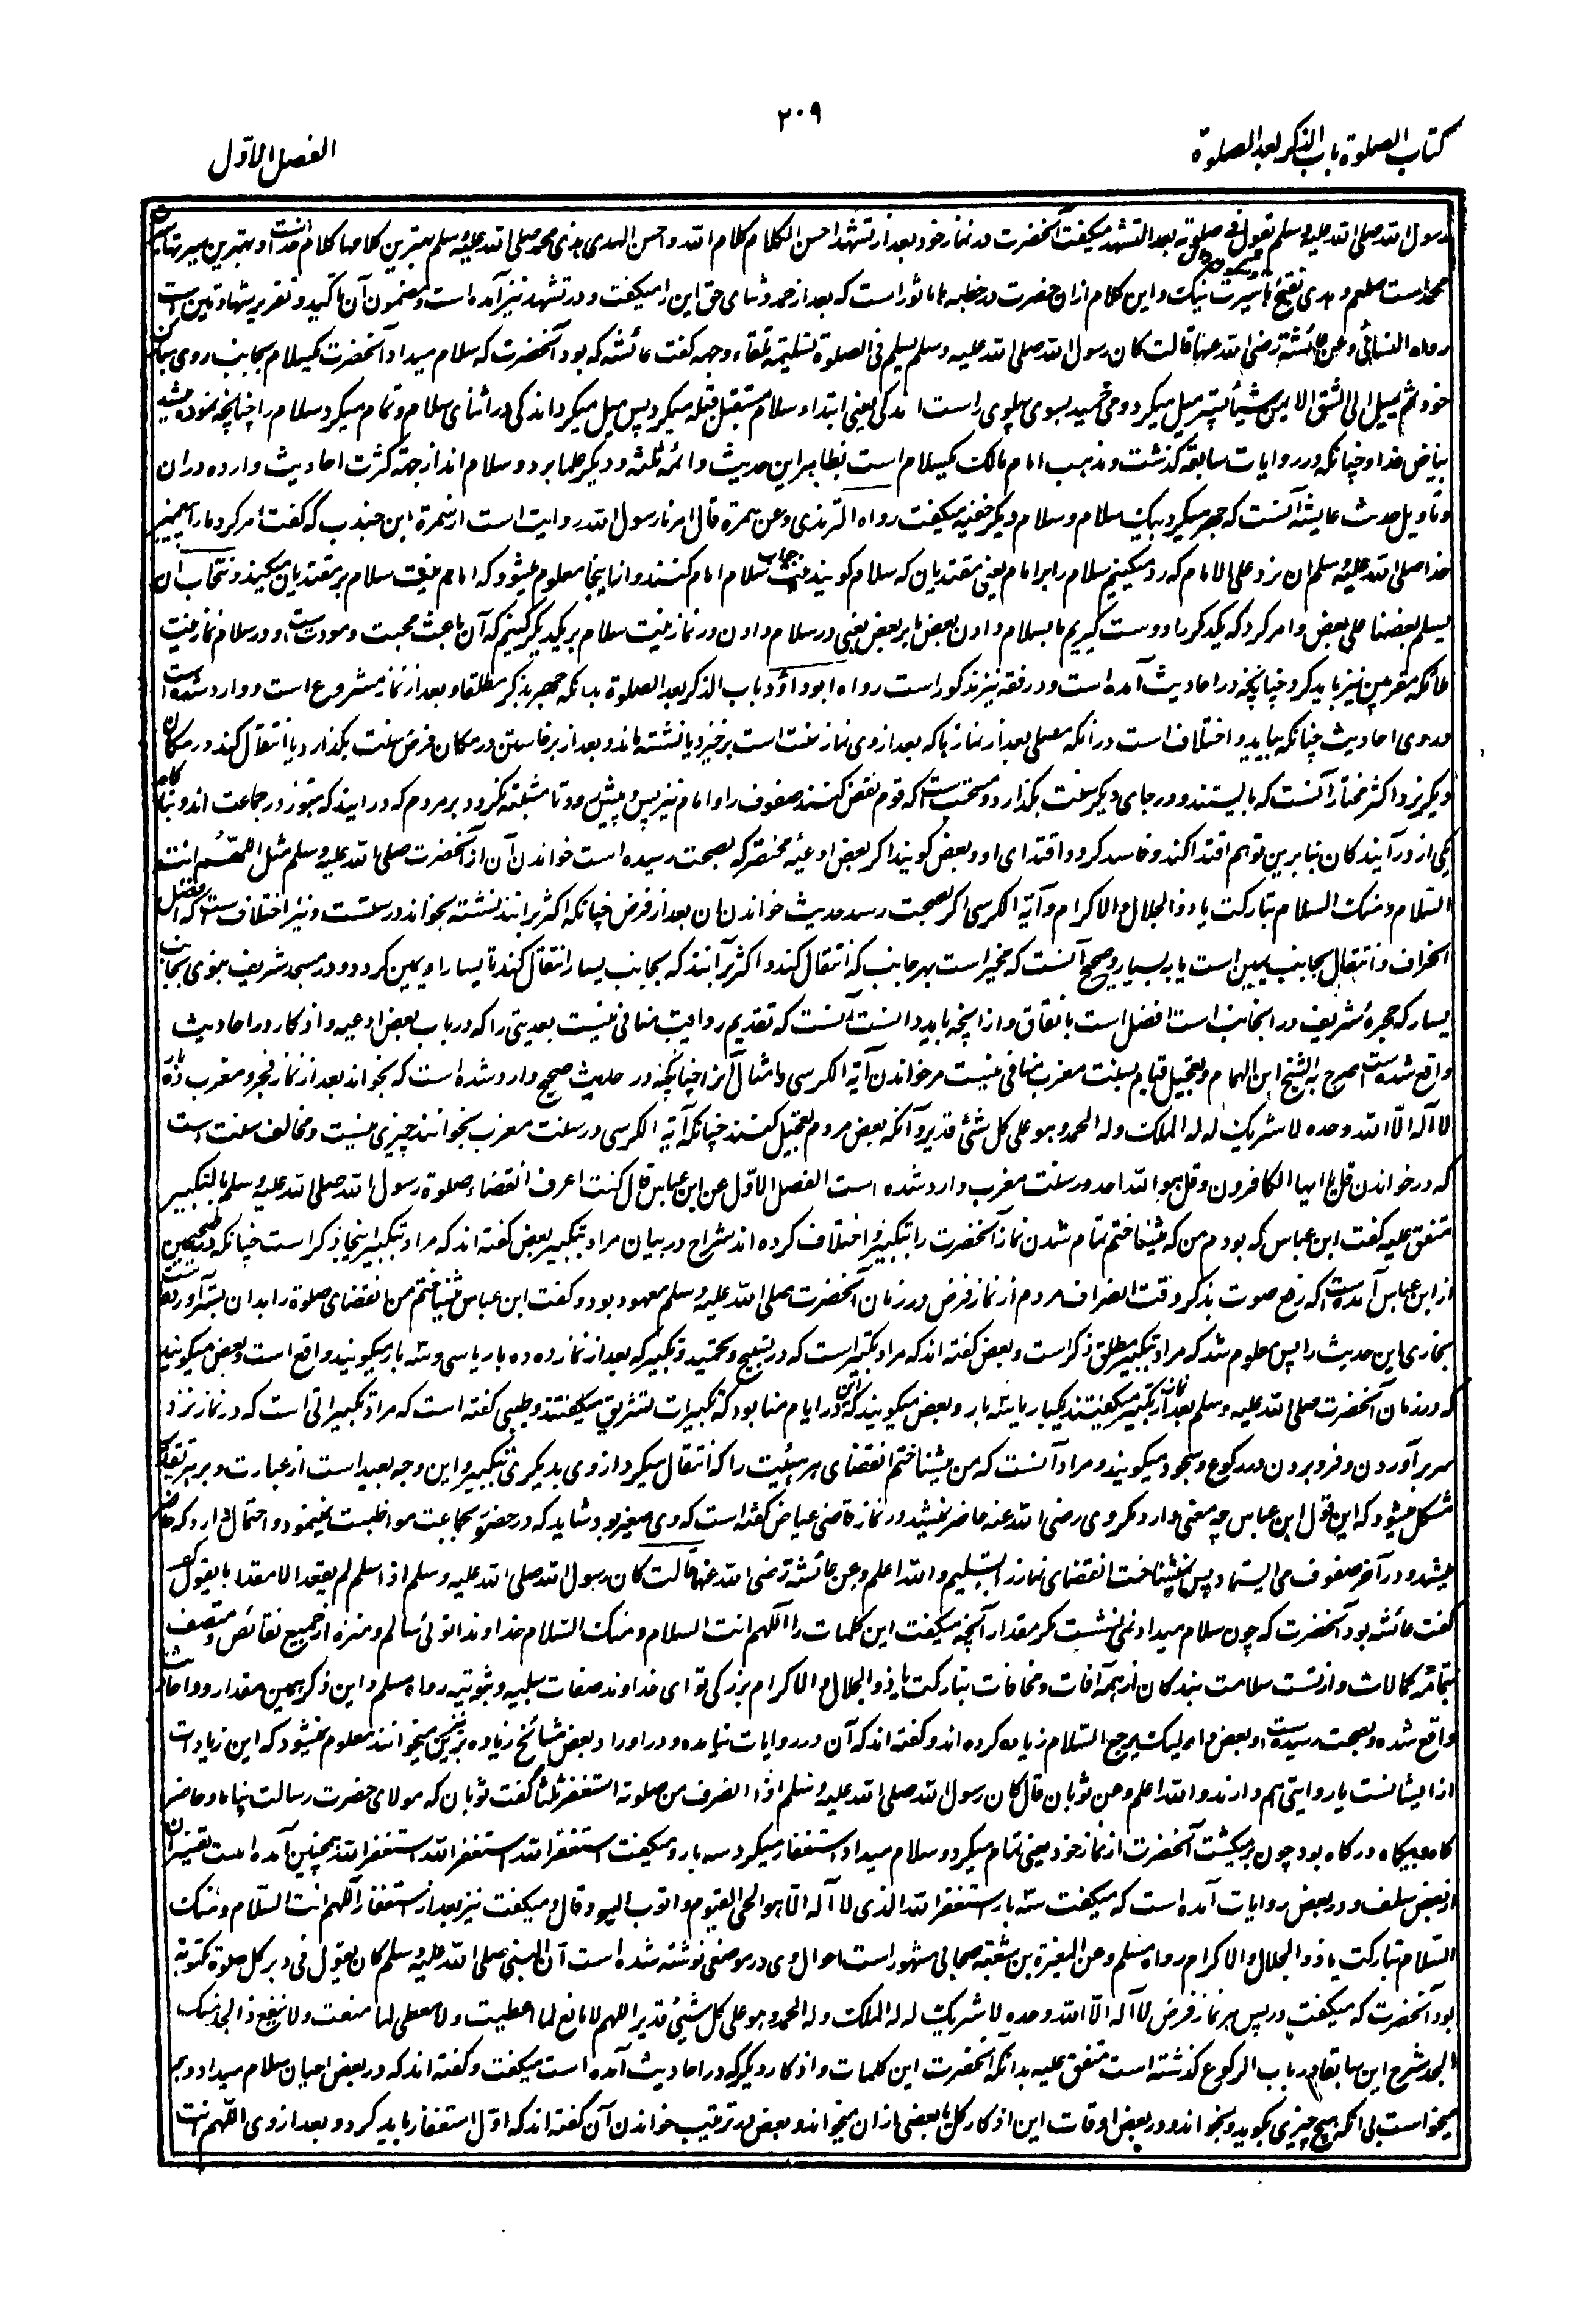 ۲۰۹
كتاب الصلوة باب الذكر بعد الصلوة
الفصل الاوّل
رسول الله صلى الله عليه وسلم يقول فى صلوته بعد التشهد ميكفت آنحضرت در نماز خود بعد از تشهد احسن الكلام كلام الله و احسن الهدى هدى محمد صلى الله عليه وسلم بهترين كلامها كلام خداست و بهترين سيرتها
محمد است صلعم و هدى بفتح ها سيرت نيك و اين كلام ازان حضرت در خطبه ها ماثور است كه بعد از حمد و ثناى حق اين را ميكفت و در تشهد نيز آمده است و مضمون آن تاكيد و تقرير شهادتين است
رواه النسائى وعن عائشة رضى الله عنها قالت كان رسول الله صلى الله عليه وسلم يسلم فى الصلوة تسليمة تلقاء وجهه كفت عائشه كه بود آنحضرت كه سلام ميداد آنحضرت يكسلام بجانب روى مبارك
خود ثم يميل الى الشق الايمن شيئا پستر ميل ميكرد و مى خميد بسوى پهلوى راست اندكى يعنى ابتداء سلام مستقبل قبله ميكرد پس ميل ميكرد اندكى در اثناى سلام و تمام ميكرد سلام را چنانچه نموده ميشد
بياض خد او چنانكه در روايات سابقه كذشت و مذهب امام مالك يكسلام است بظاهر اين حديث و ائمه ثلثه و ديكر علما بر دو سلام اند از جهت كثرت احاديث وارده در ان
و تاويل حديث عايشه آنست كه جهر ميكرد بيك سلام و سلام ديكر خفيه ميكفت رواه الترمذى وعن سمرة قال امرنا رسول الله روايت است از سمرة ابن جندب كه كفت امر كرد ما را پيغمبر
خدا صلى الله عليه وسلم ان نرد على الامام كه رد ميكنيم سلام را بر امام يعنى مقتديان كه سلام كويند بنيت جواب سلام امام كنند و از اينجا معلوم ميشود كه امام بنيت سلام بر مقتديان ميكند و نتحاب و ان
يسلم بعضنا على بعض و امر كرد كه يكديكر را دوست كيريم ما بسلام دادن بعض ما بر بعض يعنى در سلام دادن در نماز بنيت سلام بر يكديكر كنيم كه آن باعث محبت و مودت است و در سلام نماز نيت
ملائكه مقربين نيز بايد كرد چنانچه در احاديث آمده است و در فقه نيز مذكور است رواه ابو داؤد باب الذكر بعد الصلوة بدانكه جهر بذكر مطلقا و بعد از نماز مشروع است و وارد شده است
در وى احاديث چنانكه بيايد و اختلاف است در آنكه مصلى بعد از نماز يا كه بعد از وى نماز سنت است برخيزد يا نشسته ماند و بعد از برخاستن در مكان فرض سنت بكذارد يا انتقال كند در مكان
ديكر نزد اكثر مختار آنست كه بايستند و در جاى ديكر سنت بكذارد و مستحب است كه قوم نقض كنند صفوف را و امام نيز پس و پيش رود تا مشتبه نكردد بر مردم كه در ايند كه هنوز در جماعت اند و
يكى از در آيندكان بنا برين توهم اقتدا كند و فاسد كردد اقتداى او و بعض كويند اكر بعض ادعيهٔ مختصر كه بصحت رسيده است خواندن آن از آنحضرت صلى الله عليه وسلم مثل اللهم انت
السلام و منك السلام تباركت يا ذو الجلال والاكرام و آية الكرسى اكر بصحت رسد حديث خواندن ان بعد از فرض چنانكه اكثر برانند نشسته بخواند درستست و نيز اختلاف است كه افضل
انحراف و انتقال بجانب يمين است يا بر يسار و صحيح آنست كه مخير است بهر جانب كه انتقال كند و اكثر برآنند كه بجانب يسار انتقال كند تا يسار او يمين كردد و در مسجد شريف نبوى بجانب
يسار كه حجرهٔ شريف در انجانب است افضل است باتفاق و از آنچه بايد دانست آنست كه تقديم رواتب منافى نيست بعديتى را كه در باب بعض ادعيه و اذكار در احاديث
واقع شده است صرح به الشيخ ابن الهمام و تعجيل قيام بسنت مغرب منافى نيست مر خواندن آية الكرسى و امثال آنرا چنانچه در حديث صحيح وارد شده است كه بخواند بعد از نماز فجر و مغرب ده بار
لا اله الّا الله وحده لا شريك له له الملك وله الحمد وهو على كل شئى قدير و آنكه بعض مردم تعجيل كنند چنانكه آية الكرسى در سنت مغرب بخوانند چيزى نيست و مخالف سنت است
كه در خواندن قل يا ايها الكافرون و قل هو الله احد در سنت مغرب وارد شده است الفصل الاوّل عن ابن عباس قال كنت اعرف انقضاء صلوة رسول الله صلى الله عليه وسلم بالتكبير
متفق عليه كفت ابن عباس كه بودم من كه ميشناختم تمام شدن نماز آنحضرت را بتكبير و اختلاف كرده اند شراح در بيان مراد بتكبير بعض كفته اند كه مراد بتكبير اينجا ذكر است چنانكه در صحيحين
از ابن عباس آمده است كه رفع صوت بذكر وقت انصراف مردم از نماز فرض در زمان آنحضرت صلى الله عليه وسلم معهود بود و كفت ابن عباس ميشناختم من انقضاى صلوة را بدان
بخارى اين حديث را پس معلوم شد كه مراد بتكبير مطلق ذكر است و بعض كفته اند كه مراد تكبير است كه در تسبيح و تحميد و تكبير كه بعد از نماز ده ده بار يا سى و سه بار ميكويند واقع است و بعض ميكويند
كه در زمان آنحضرت صلى الله عليه وسلم بعد از نماز تكبير ميكفتند يكبار يا سه بار و بعض ميكويند كه اين در ايام منا بود كه تكبيرات تشريق ميكفتند و طيبى كفته است كه مراد تكبيراتى است كه در نماز نزد
سر بر آوردن و فرو بردن در ركوع و سجود ميكويند و مراد آنست كه من ميشناختم انقضاى هر هيئت را كه انتقال ميكرد از وى بديكرى بتكبير و اين وجه بعيد است از عبارت و بر هر تقدير
مشكل ميشود كه اين قول ابن عباس چه معنى دارد مكر وى رضى الله عنه حاضر نميشد در نماز قاضى عياض كفته است كه وى صغير بود شايد كه در حضور بجماعت مواظبت نمينمود و احتمال دارد كه حاضر
ميشد و در آخر صفوف مى ايستاد پس نميشناخت انقضاى نماز را بتسليم و الله اعلم وعن عائشة رضى الله عنها قالت كان رسول الله صلى الله عليه وسلم اذا سلم لم يقعد الا مقدار ما يقول
كفت عائشه بود آنحضرت كه چون سلام ميداد نمى نشست مكر مقدار آنچه ميكفت اين كلمات را اللهم انت السلام و منك السلام خداوندا توئى سالم و منزه از جميع نقائص و متصف
بتمامهٔ كمالات و از تست سلامت بندكان از همه آفات و مخافات تباركت يا ذو الجلال والاكرام بزركى تو اى خداوند صفات سلبيه و ثبوتيه رواه مسلم و اين ذكر همين مقدار در احاديث
واقع شده و بصحت رسيده است و بعض و اليك يرجع السلام زياده كرده اند و كفته اند كه آن در روايات نيامده و در اوراد بعض مشائخ زياده برين نيز ميخوانند معلوم نميشود كه اين زيادت
از ايشانست يا روايتى هم دارند و الله اعلم وعن ثوبان قال كان رسول الله صلى الله عليه وسلم اذا انصرف من صلوته استغفر ثلثا كفت ثوبان كه مولاى حضرت رسالت پناه و حاضر
كاه و بيكاه دركاه بود چون بر ميكشت آنحضرت از نماز خود يعنى تمام ميكرد و سلام ميداد استغفار ميكرد سه بار و ميكفت استغفر الله استغفر الله استغفر الله همچنين آمده است تفسير ان
از بعض سلف و در بعض روايات آمده است كه ميكفت سه بار استغفر الله الذى لا اله الّا هو الحى القيوم و اتوب اليه و قال و ميكفت نيز بعد از استغفار اللهم انت السّلام و منك
السّلام تباركت يا ذو الجلال والاكرام رواه مسلم وعن المغيرة بن شعبة صحابى مشهور است احوال وى در موضعى نوشته شده است ان النبى صلى الله عليه وسلم كان يقول فى دبر كل صلوة مكتوبة
بود آنحضرت كه ميكفت در پس هر نماز فرض لا اله الّا الله وحده لا شريك له له الملك وله الحمد وهو على كل شيئى قدير اللهم لا مانع لما اعطيت ولا معطى لما منعت ولا ينفع ذا الجد منك
الجد شرح اين سابقا در باب الركوع كذشته است متفق عليه بدانكه آنحضرت اين كلمات و اذكار ديكر كه در احاديث آمده است ميكفت و كفته اند كه در بعض احيان سلام ميداد و بر
ميخواست بى آنكه هيچ چيزى بكويد و بخواند و در بعض اوقات اين اذكار كل يا بعضى ازان ميخواند و بعض در ترتيب خواندن آن كفته اند كه اوّل استغفار بايد كرد و بعد از وى اللّهم انت